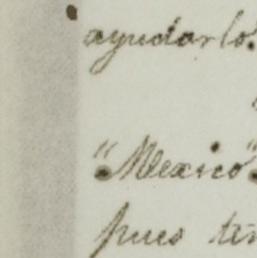 ayudarlo.
"Mexico"
pues